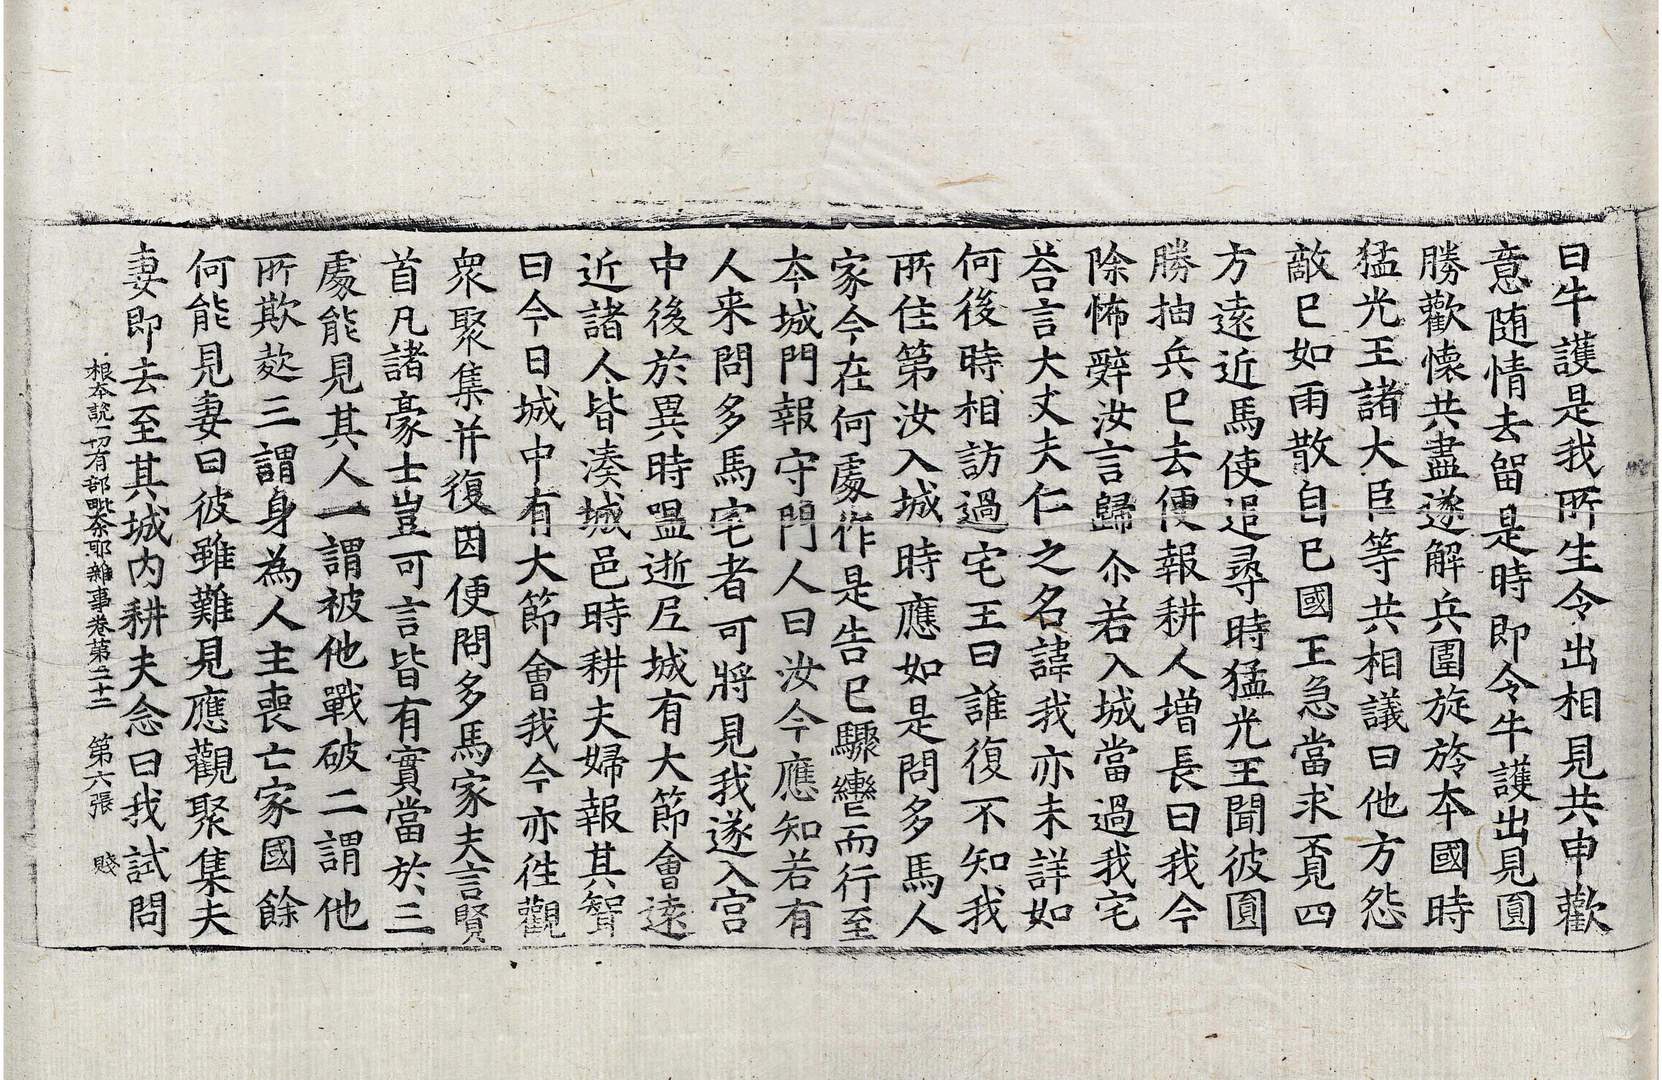 曰牛護是我所生令出相見共申歡
意随情去留是時即令牛護出見圓
勝歡懷共盡遂解兵圍旋旍本國時
猛光王諸大臣等共相議曰他方怨
敵已如雨散自已國王急當求覓四
方遠近馬使追尋時猛光王聞彼圓
勝抽兵已去便報耕人增長曰我今
除怖辭汝言歸尒若入城當過我宅
荅言大丈夫仁之名諱我亦未詳如
何後時相訪過宅王曰誰復不知我
所住第汝入城時應如是問多馬人
家今在何處作是告已驟轡而行至
本城門報守門人曰汝今應知若有
人来問多馬宅者可將見我遂入宫
中後於異時嗢逝尼城有大節會遠
近諸人皆湊城邑時耕夫婦報其智
曰今日城中有大節會我今亦徃觀
衆聚集并復因便問多馬家夫言賢
首凡諸豪士豈可言皆有實當於三
處能見其人一謂被他戰破二謂他
所欺欻三謂身為人主喪亡家國餘
何能見妻曰彼雖難見應觀聚集夫
妻即去至其城内耕夫念曰我試問
根本說一切有部毗奈耶雜事卷第二十二 第六張 賤